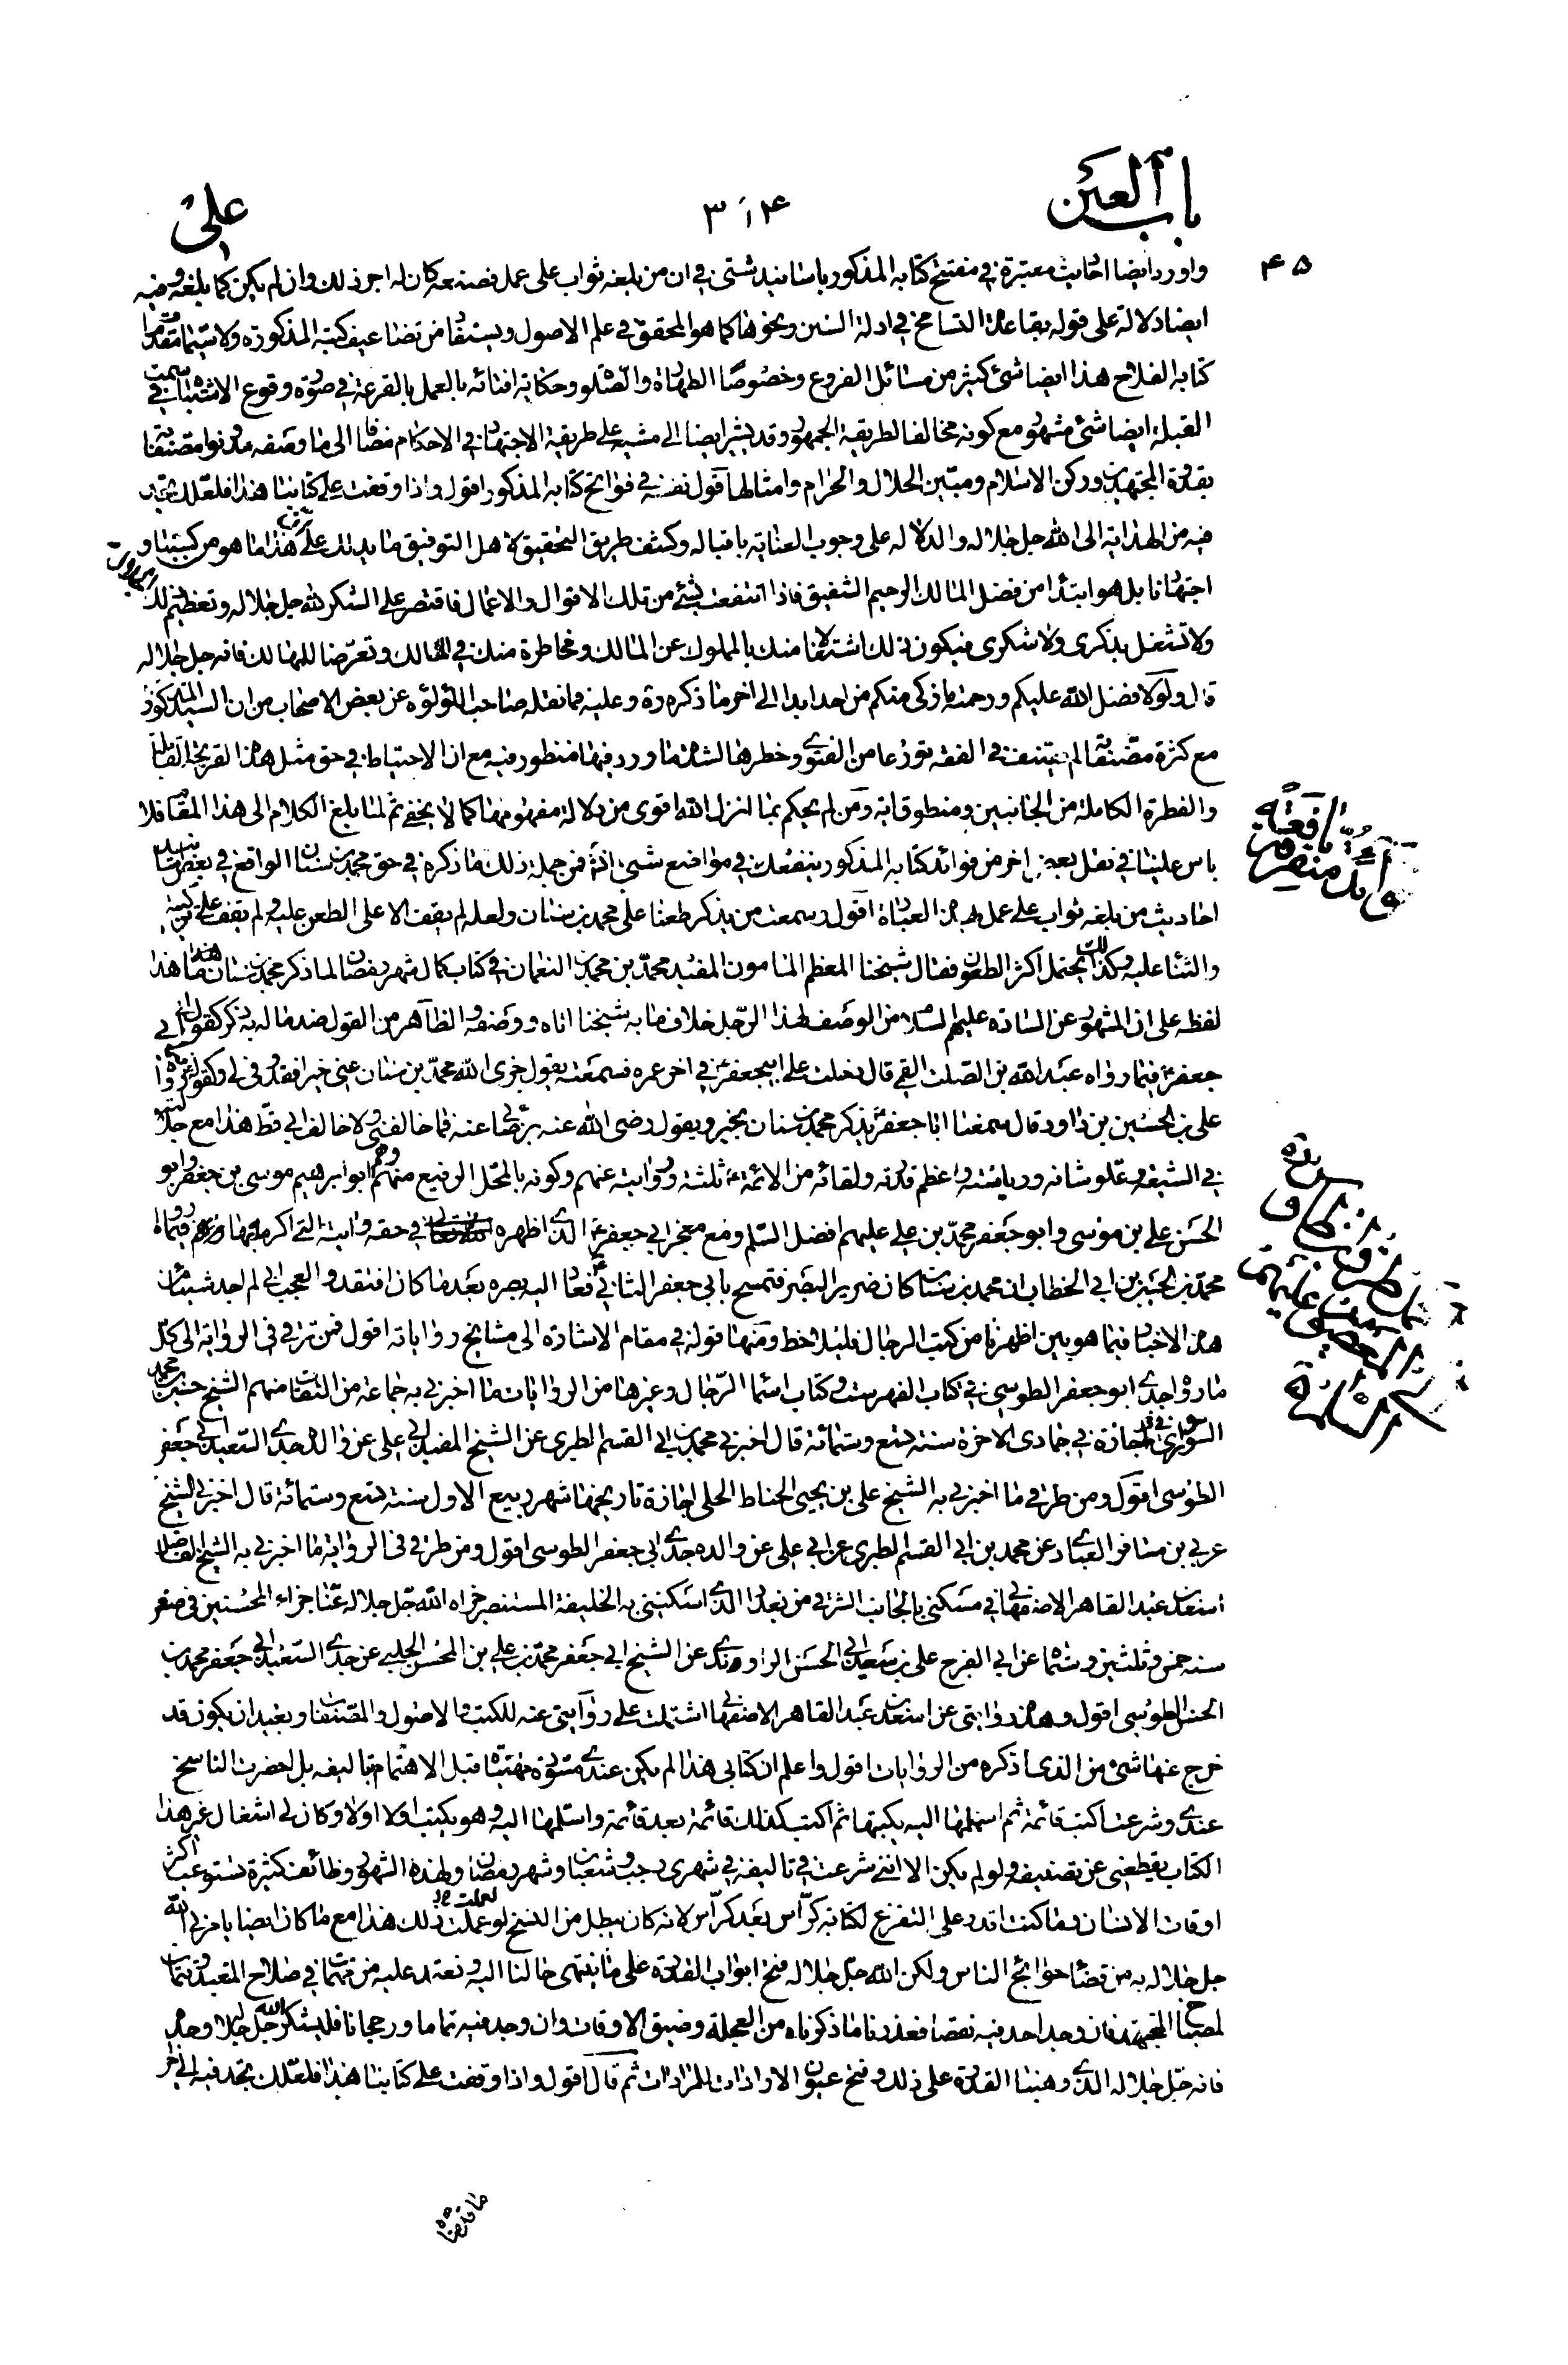 باب العين
۳۱۴
على
۴۵
واورد ايضا احاديث معتبرة في مفتتح كتابه المذكور باسانيد شتى في ان من بلغه ثواب على عمل فصنعه كان له اجر ذلك وان لم يكن كما بلغه وفيه
ايضا دلالة على قوله بقاعدة التسامح في ادلة السنن ونحوها كما هو المحقق في علم الاصول ويستفاد من تضاعيف كتبه المذكورة ولا سيما مقدمة
كتابه الفلاح هذا ايضا شئ كثير من مسائل الفروع وخصوصا الطهارة والصلوة وحكاية افتائه بالعمل بالقرعة في صورة وقوع الاشتباه في سمت
القبلة ايضا شئ مشهور مع كونه مخالفا لطريقة الجمهور وقد يشير ايضا الى مشيه على طريقة الاجتهاد في الاحكام مضافا الى ما وصفه مدونوا مصنفاته
بقدوة المجتهدين وركن الاسلام ومبين الحلال والحرام وامثالها قول نفسه في فواتح كتابه المذكور اقول واذا وقفت على كتابنا هذا فلعلك تجد
فيه من الهداية الى الله جل جلاله والدلالة على وجوب العناية باقباله وكشف طريق التحقيق لاهل التوفيق ما يدلك على ان هذا ما هو من كسبنا و
اجتهادنا بل هو ابتداء من فضل المالك الرحيم الشفيق فاذا انتفعت بشئ من تلك الاقوال والاعمال فاقتصر على الشكر لله جل جلاله وتعظيم ذلك
ولا تشتغل بذكرى ولا شكرى فيكون ذلك اشتغالا منك بالمملوك عن المالك ومخاطرة منك في المسالك وتعرضا للمهالك فانه جل جلاله
قال ولولا فضل الله عليكم ورحمته ما زكى منكم من احد ابدا الى اخر ما ذكره ره وعليه فما نقله صاحب اللؤلؤة عن بعض الاصحاب من ان السيد المذكور
مع كثرة مصنفاته لم يصنف في الفقه تورعا من الفتوى وخطرها لشدة ما ورد فيها منظور فيه مع ان الاحتياط في حق مثل هذا القريحة القابلة
والفطرة الكاملة من الجانبين ومنطوق اية ومن لم يحكم بما انزل الله اقوى من دلالة مفهومها كما لا يخفى ثم لما بلغ الكلام الى هذا المقام فلا
باس علينا في نقل بعض اخر من فوائد كتابه المذكور ينفعك في مواضع شتى انشاء فمن جملة ذلك ما ذكره في حق محمد بن سنان الواقع في بعض اسانيد
احاديث من بلغه ثواب على عمل بهذه العبارة اقول وسمعت من يذكر طعنا على محمد بن سنان ولعله لم يقف الا على الطعن عليه ولم يقف على تزكيته
والثناء عليه وكذلك يحتمل اكثر الطعون فقال شيخنا المعظم المامون المفيد محمد بن محمد بن النعمان في كتاب كمال شهر رمضان لما ذكر محمد بن سنان ما هذا
لفظه على ان المشهور عن السادة عليهم السلام من الوصف لهذا الرجل خلاف ما به شيخنا اتاه ووصفه والظاهر من القول ضد ما له به ذكر كقول ابي
جعفر ع فيما رواه عبد الله بن الصلت القمي قال دخلت على ابيجعفر ع في اخر عمره فسمعته يقول جزى الله محمد بن سنان عني خيرا فقد وفى لي وكقوله ع فيما رواه
على بن الحسين بن داود قال سمعنا ابا جعفر ع يذكر محمد بن سنان بخير ويقول رضى الله عنه برضائى عنه فما خالفني ولا خالف ابي قط هذا مع جلالته
في الشيعة وعلو شانه ورياسته واعظم قدره ولقائه من الائمة ع ثلثة وروايته عنهم وكونه بالمحل الرفيع منهم وهم ابو ابراهيم موسى بن جعفر وابو
الحسن على بن موسى وابو جعفر محمد بن على عليهم افضل السلم ومع معجز ابي جعفر ع الذى اظهره الله تعالى في حقه وايته التي اكرمه بها فيما رواه
محمد بن الحسين بن ابي الخطاب ان محمد بن سنان كان ضرير البصر فتمسح بابي جعفر الثاني ع فعاد اليه بصره بعد ما كان افتقده والعجب اني لم اجد شيئا من
هذه الاخبار فيما هو بين اظهرنا من كتب الرجال فليلاحظ ومنها قوله في مقام الاشارة الى مشايخ رواياته اقول فمن طرقي في الرواية الى كل
ما رواه جدى ابو جعفر الطوسي في كتاب الفهرست وكتاب اسماء الرجال وغيرها من الروايات ما اخبرني به جماعة من الثقات منهم الشيخ حسين بن محمد
السوراوى اجازة في جمادى الاخرة سنة تسع وستمائة قال اخبرني محمد بن ابي القسم الطبري عن الشيخ المفيد ابي على عن والده جدى السعيد ابي جعفر
الطوسى اقول ومن طرقي ما اخبرني به الشيخ على بن يحيى الحناط الحلى اجازة تاريخها شهر ربيع الاول سنة تسع وستمائة قال اخبرني الشيخ
عربي بن مسافر العبادى عن محمد بن ابي القسم الطبري عن ابي على عن والده جدى ابي جعفر الطوسى اقول ومن طرقي في الرواية ما اخبرني به الشيخ الفاضل
اسعد بن عبد القاهر الاصفهاني في مسكنى بالجانب الشرقي من بغداد الذى اسكننى به الخليفة المستنصر جزاه الله جل جلاله عنا جزاء المحسنين في صفر
سنة خمس وثلثين وستمائة عن ابي الفرج على بن سعيد ابي الحسن الراوندى عن الشيخ ابي جعفر محمد بن على بن المحسن الحلبي عن جدى السعيد ابي جعفر محمد بن
الحسن الطوسى اقول وهذه روايتى عن اسعد بن عبد القاهر الاصفهاني اشتملت على روايتى عنه للكتب والاصول والمصنفات وبعيد ان يكون قد
خرج عنها شئ من الذى اذكره من الروايات اقول واعلم ان كتابي هذا لم يكن عندى مسودة مهيئة قبل الاهتمام بتاليفه بل احضرت الناسخ
عندى وشرعت اكتب قائمة ثم اسلمها اليه يكتبها ثم اكتب كذلك قائمة بعد قائمة واسلمها اليه وهو يكتب اولا اولا وكان لي اشغال غير هذا
الكتاب يقطعني عن تصنيفه ولو لم يكن الا انني شرعت في تاليفه في شهرى رجب وشعبان وشهر رمضان ولهذه الشهور وظائف كثيرة تستوعب اكثر
اوقات الانسان وما كنت اقدر على التفرغ لكتابة كراس بعد كراس لانه كان يبطل من النسخ لو عملت ذلك هذا مع ما كان ايضا يامرني الله
جل جلاله به من قضاء حوائج الناس ولكن الله جل جلاله فتح ابواب القدرة على ما ينتهى حالنا اليه ونعتمد عليه من مهمات في صلاح المتعبد وتتمات
لمصباح المتهجد فان وجد احد فيه نقصا فعذرنا ما ذكرناه من العجلة وضيق الاوقات وان وجد فيه تماما ورجحانا فليشكر الله جل جلاله وحده
فانه جل جلاله الذى وهبنا القدرة على ذلك وفتح عيون الارادات للمرادات ثم قال اقول واذا وقفت على كتابنا هذا فلعلك تجد فيه الى اخر